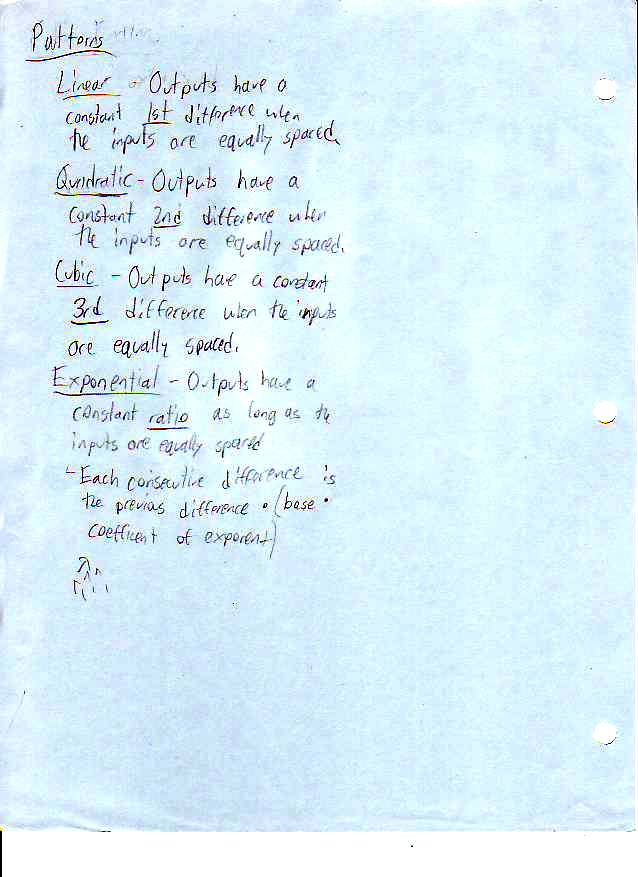 Patterns
Linear - Outputs have a
constant 1st difference when
the inputs are equally spaced.
Quadratic - Outputs have a
constant 2nd difference when
the inputs are equally spaced.
Cubic - Outputs have a constant
3rd difference when the inputs
are equally spaced.
Exponential - Outputs have a
constant ratio as long as the
inputs are equally spaced
Each consecutive difference is
the previous difference • (base •
coefficent of exponent)